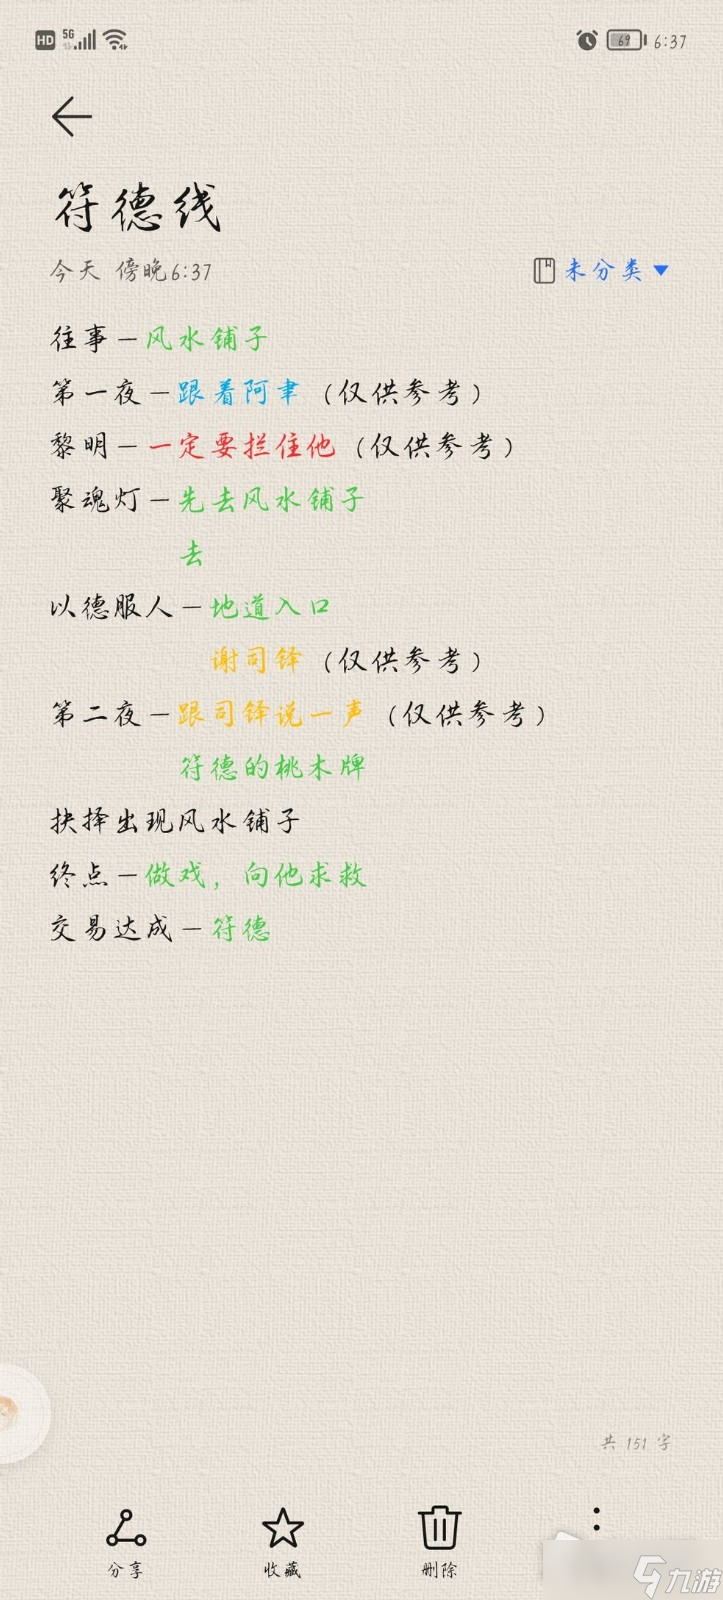 HD 5G 69 6:37
符德线
今天 傍晚6:37 未分类
往事－风水铺子
第一夜－跟着阿聿（仅供参考）
黎明－一定要拦住他（仅供参考）
聚魂灯－先去风水铺子
去
以德服人－地道入口
谢司铎（仅供参考）
第二夜－跟司铎说一声（仅供参考）
符德的桃木牌
抉择出现风水铺子
终点－做戏，向他求救
交易达成－符德
共 151 字
分享 收藏 删除
九游